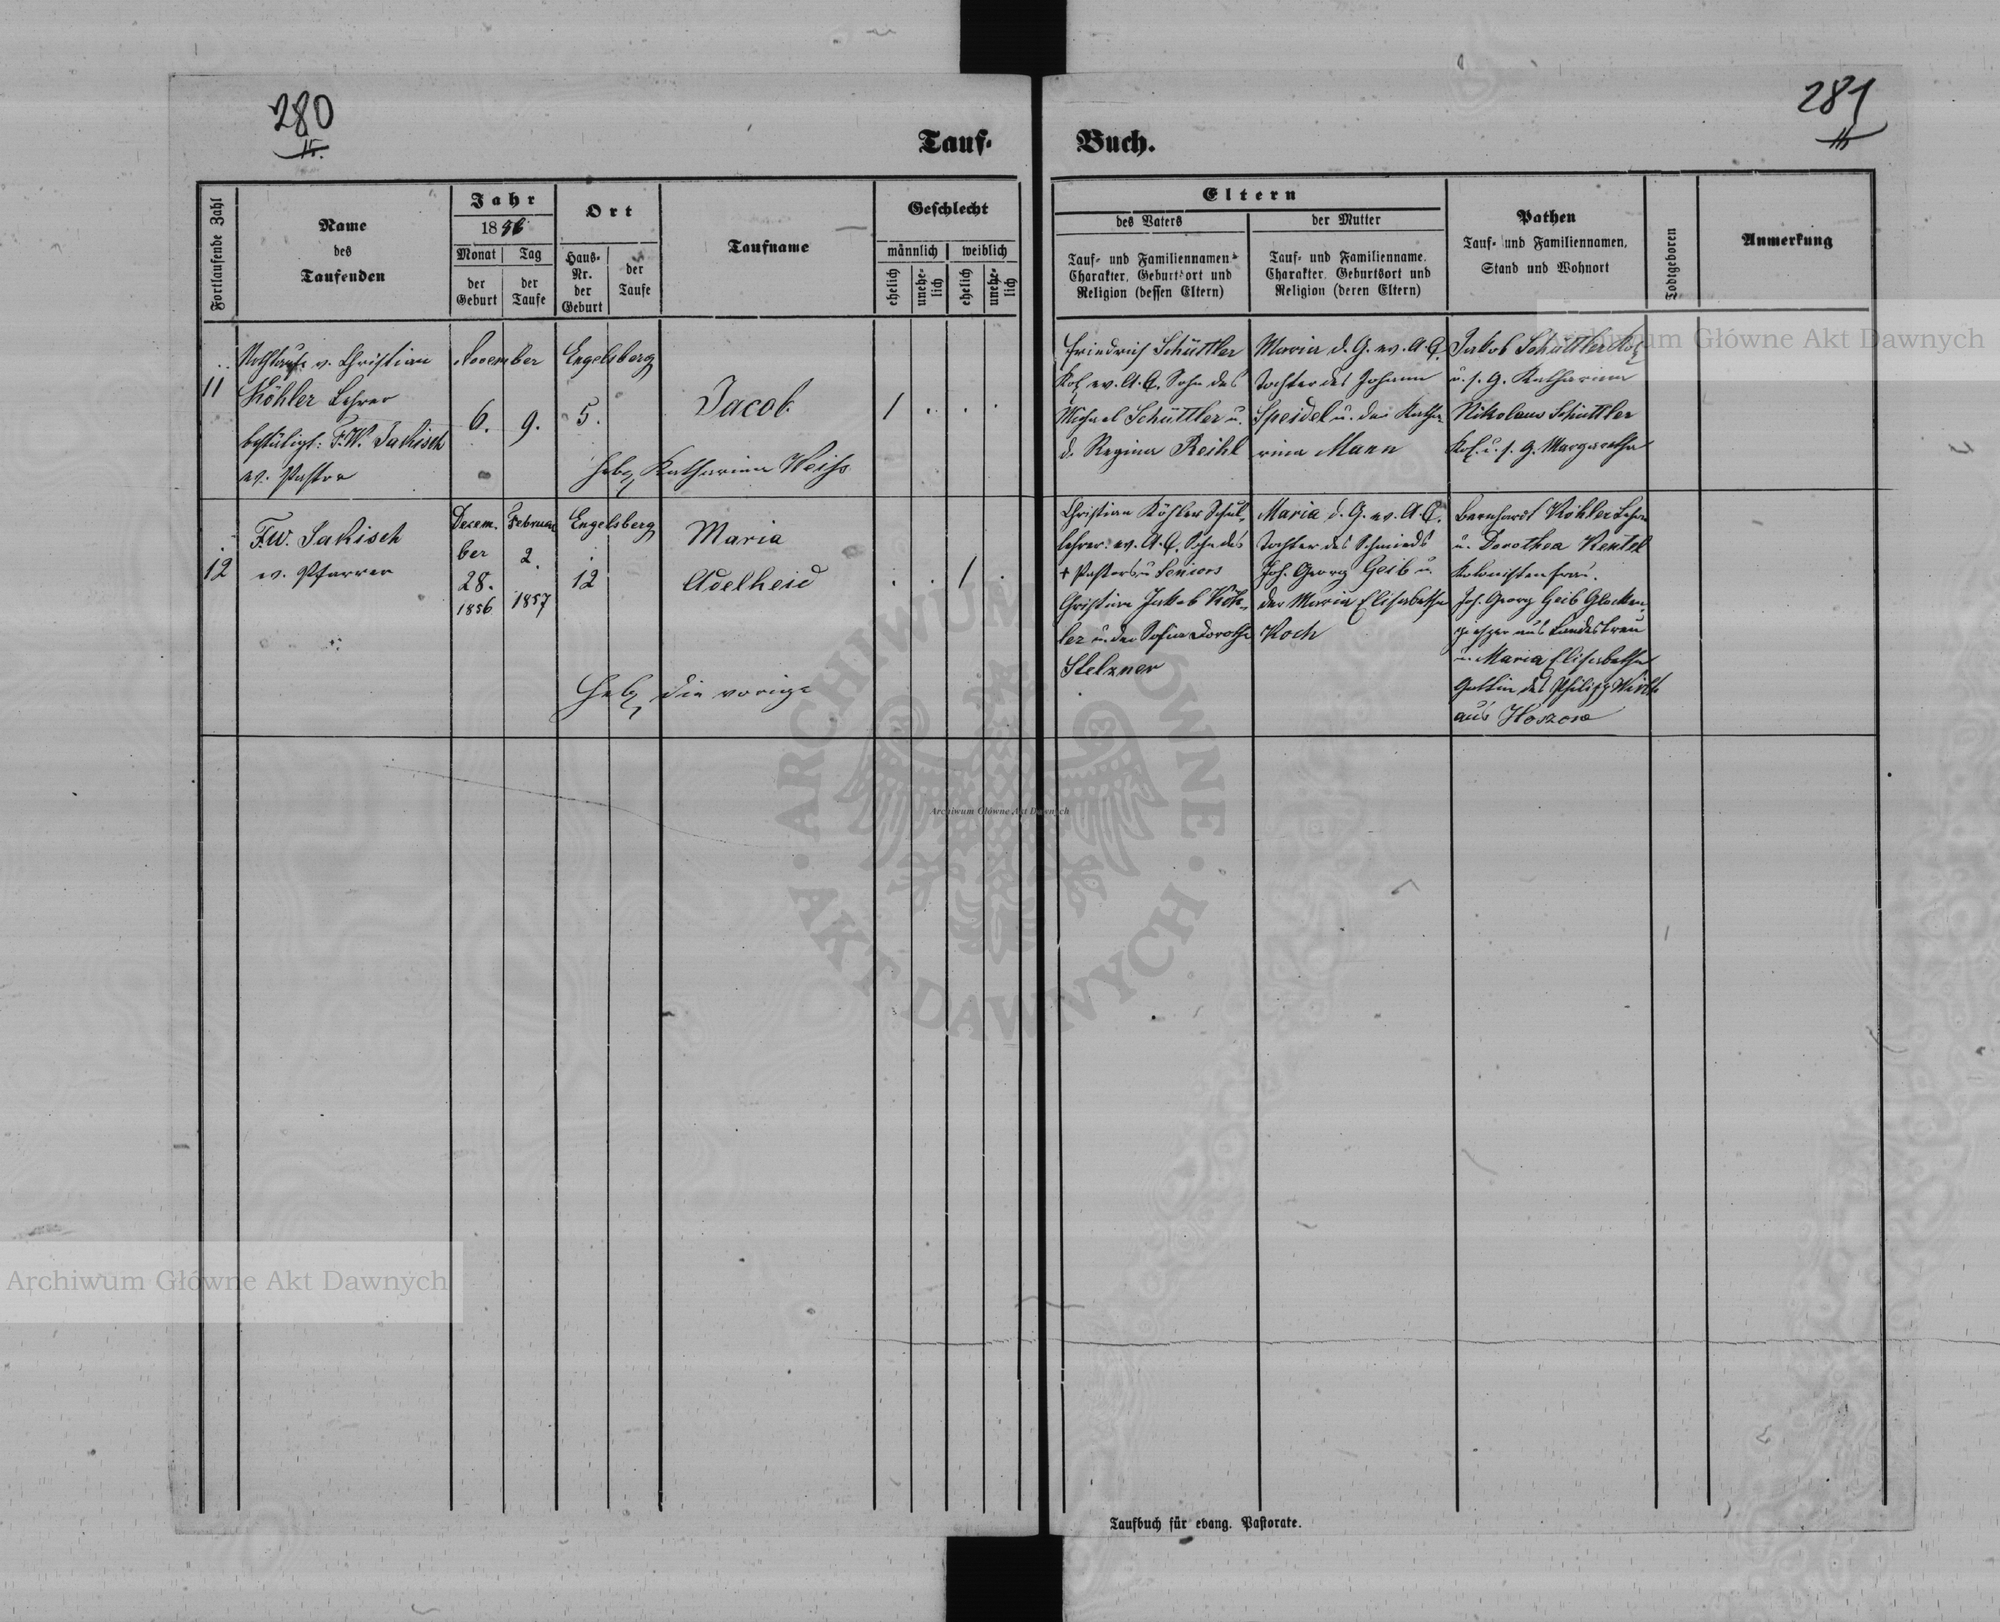 280
II.
281
II
Tauf-
Buch.
Fortlaufende Zahl
Name
des
Taufenden
Jahr
1856
Monat
Tag
der
Geburt
der
Taufe
Ort
Haus-
Nr.
der
Geburt
der
Taufe
Taufname
Geschlecht
männlich
weiblich
ehelich
unehe-
lich
ehelich
unehe-
lich
Eltern
des Vaters
der Mutter
Tauf- und Familiennamen
Charakter, Geburtsort und
Religion (dessen Eltern)
Tauf- und Familienname,
Charakter, Geburtsort und
Religion (deren Eltern)
Pathen
Tauf- und Familiennamen,
Stand und Wohnort
Todtgeboren
Anmerkung
11
Nothtaufe v. Christian
Köhler Lehrer
bestätigt: F.W. Jakisch
ev. Pastor
November
6.
9.
Engelsberg
5.
Jacob
Heb. Katharina Weiss
1 . . .
Friedrich Schüttler
Kol. ev. A.C. Sohn des
Michael Schüttler u.
d. Regina Reihl
Maria d. G. ev. A.C.
Tochter des Johann
Speidel u. der Katha-
rina Mann
Jakob Schüttler Kol.
u. s. G. Katharina
Nikolaus Schüttler
Kol. u. s. G. Margaretha
12
F.W. Jakisch
ev. Pfarrer
Decem-
ber
28.
1856
Februar
2.
1857
Engelsberg
12
Maria
Adelheid
Heb. die vorige
. . 1 .
Christian Köhler Schul-
lehrer ev. A.C. Sohn des
+ Pastors u. Seniors
Christian Jakob Köh-
ler u. der Sofia Dorothe
Stelzner
Maria d. G. ev. A.C.
Tochter des Schmieds
Joh. Georg Geib u.
der Maria Elisabetha
Koch
Bernhardt Köhler Lehrer
u. Dorothea Rentel
Kolonistenfrau.
Joh. Georg Geib Glocken-
giesser aus Landestreu
u. Maria Elisabetha
Gattin des Philipp
aus Hoszow
Taufbuch für evang. Pastorate.
Archiwum Główne Akt Dawnych
Archiwum Główne Akt Dawnych
Archiwum Główne Akt Dawnych
ARCHIWUM GŁÓWNE · AKT DAWNYCH ·